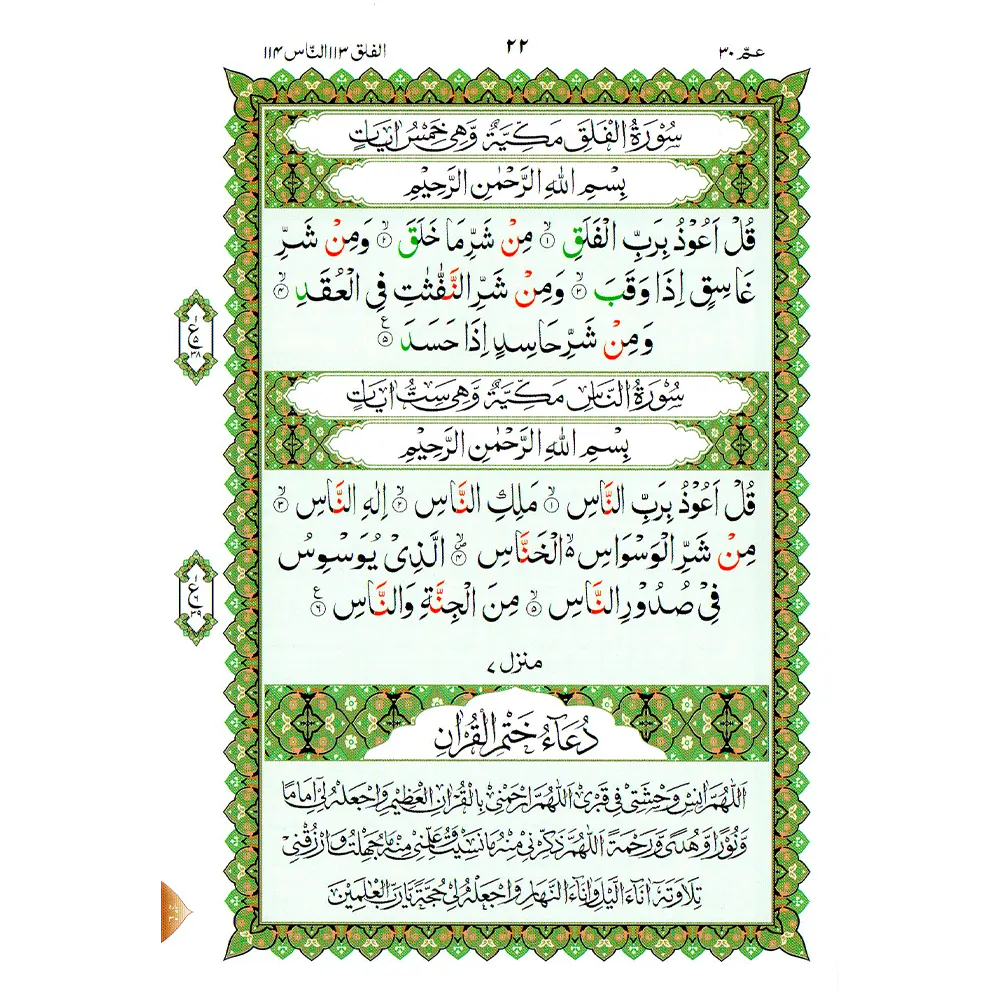 عمّ ٣٠
٢٢
الفلق ١١٣ النّاس ١١٤
سُوْرَةُ الْفَلَقِ مَكِّيَّةٌ وَّهِيَ خَمْسُ اٰيَاتٍ
بِسْمِ اللّٰهِ الرَّحْمٰنِ الرَّحِيْمِ
قُلْ اَعُوْذُ بِرَبِّ الْفَلَقِ ۙ﴿۱﴾ مِنْ شَرِّ مَا خَلَقَ ۙ﴿۲﴾ وَمِنْ شَرِّ
غَاسِقٍ اِذَا وَقَبَ ۙ﴿۳﴾ وَمِنْ شَرِّ النَّفّٰثٰتِ فِي الْعُقَدِ ۙ﴿۴﴾
وَمِنْ شَرِّ حَاسِدٍ اِذَا حَسَدَ ﴿۵﴾ ع
سُوْرَةُ النَّاسِ مَكِّيَّةٌ وَّهِيَ سِتُّ اٰيَاتٍ
بِسْمِ اللّٰهِ الرَّحْمٰنِ الرَّحِيْمِ
قُلْ اَعُوْذُ بِرَبِّ النَّاسِ ۙ﴿۱﴾ مَلِكِ النَّاسِ ۙ﴿۲﴾ اِلٰهِ النَّاسِ ۙ﴿۳﴾
مِنْ شَرِّ الْوَسْوَاسِ ۙ۬ الْخَنَّاسِ ۪ۙ﴿۴﴾ الَّذِيْ يُوَسْوِسُ
فِيْ صُدُوْرِ النَّاسِ ۙ﴿۵﴾ مِنَ الْجِنَّةِ وَالنَّاسِ ﴿۶﴾ ع
منزل ۷
دُعَآءُ خَتْمِ الْقُرْاٰنِ
اَللّٰهُمَّ اٰنِسْ وَحْشَتِيْ فِيْ قَبْرِيْ اَللّٰهُمَّ ارْحَمْنِيْ بِالْقُرْاٰنِ الْعَظِيْمِ وَاجْعَلْهُ لِيْ اِمَامًا
وَّنُوْرًا وَّهُدًى وَّرَحْمَةً اَللّٰهُمَّ ذَكِّرْنِيْ مِنْهُ مَا نَسِيْتُ وَعَلِّمْنِيْ مِنْهُ مَا جَهِلْتُ وَارْزُقْنِيْ
تِلَاوَتَهٗ اٰنَآءَ الَّيْلِ وَاٰنَآءَ النَّهَارِ وَاجْعَلْهُ لِيْ حُجَّةً يَّا رَبَّ الْعٰلَمِيْنَ
١
ع
٥
٣٨
١
ع
٦
٣٩